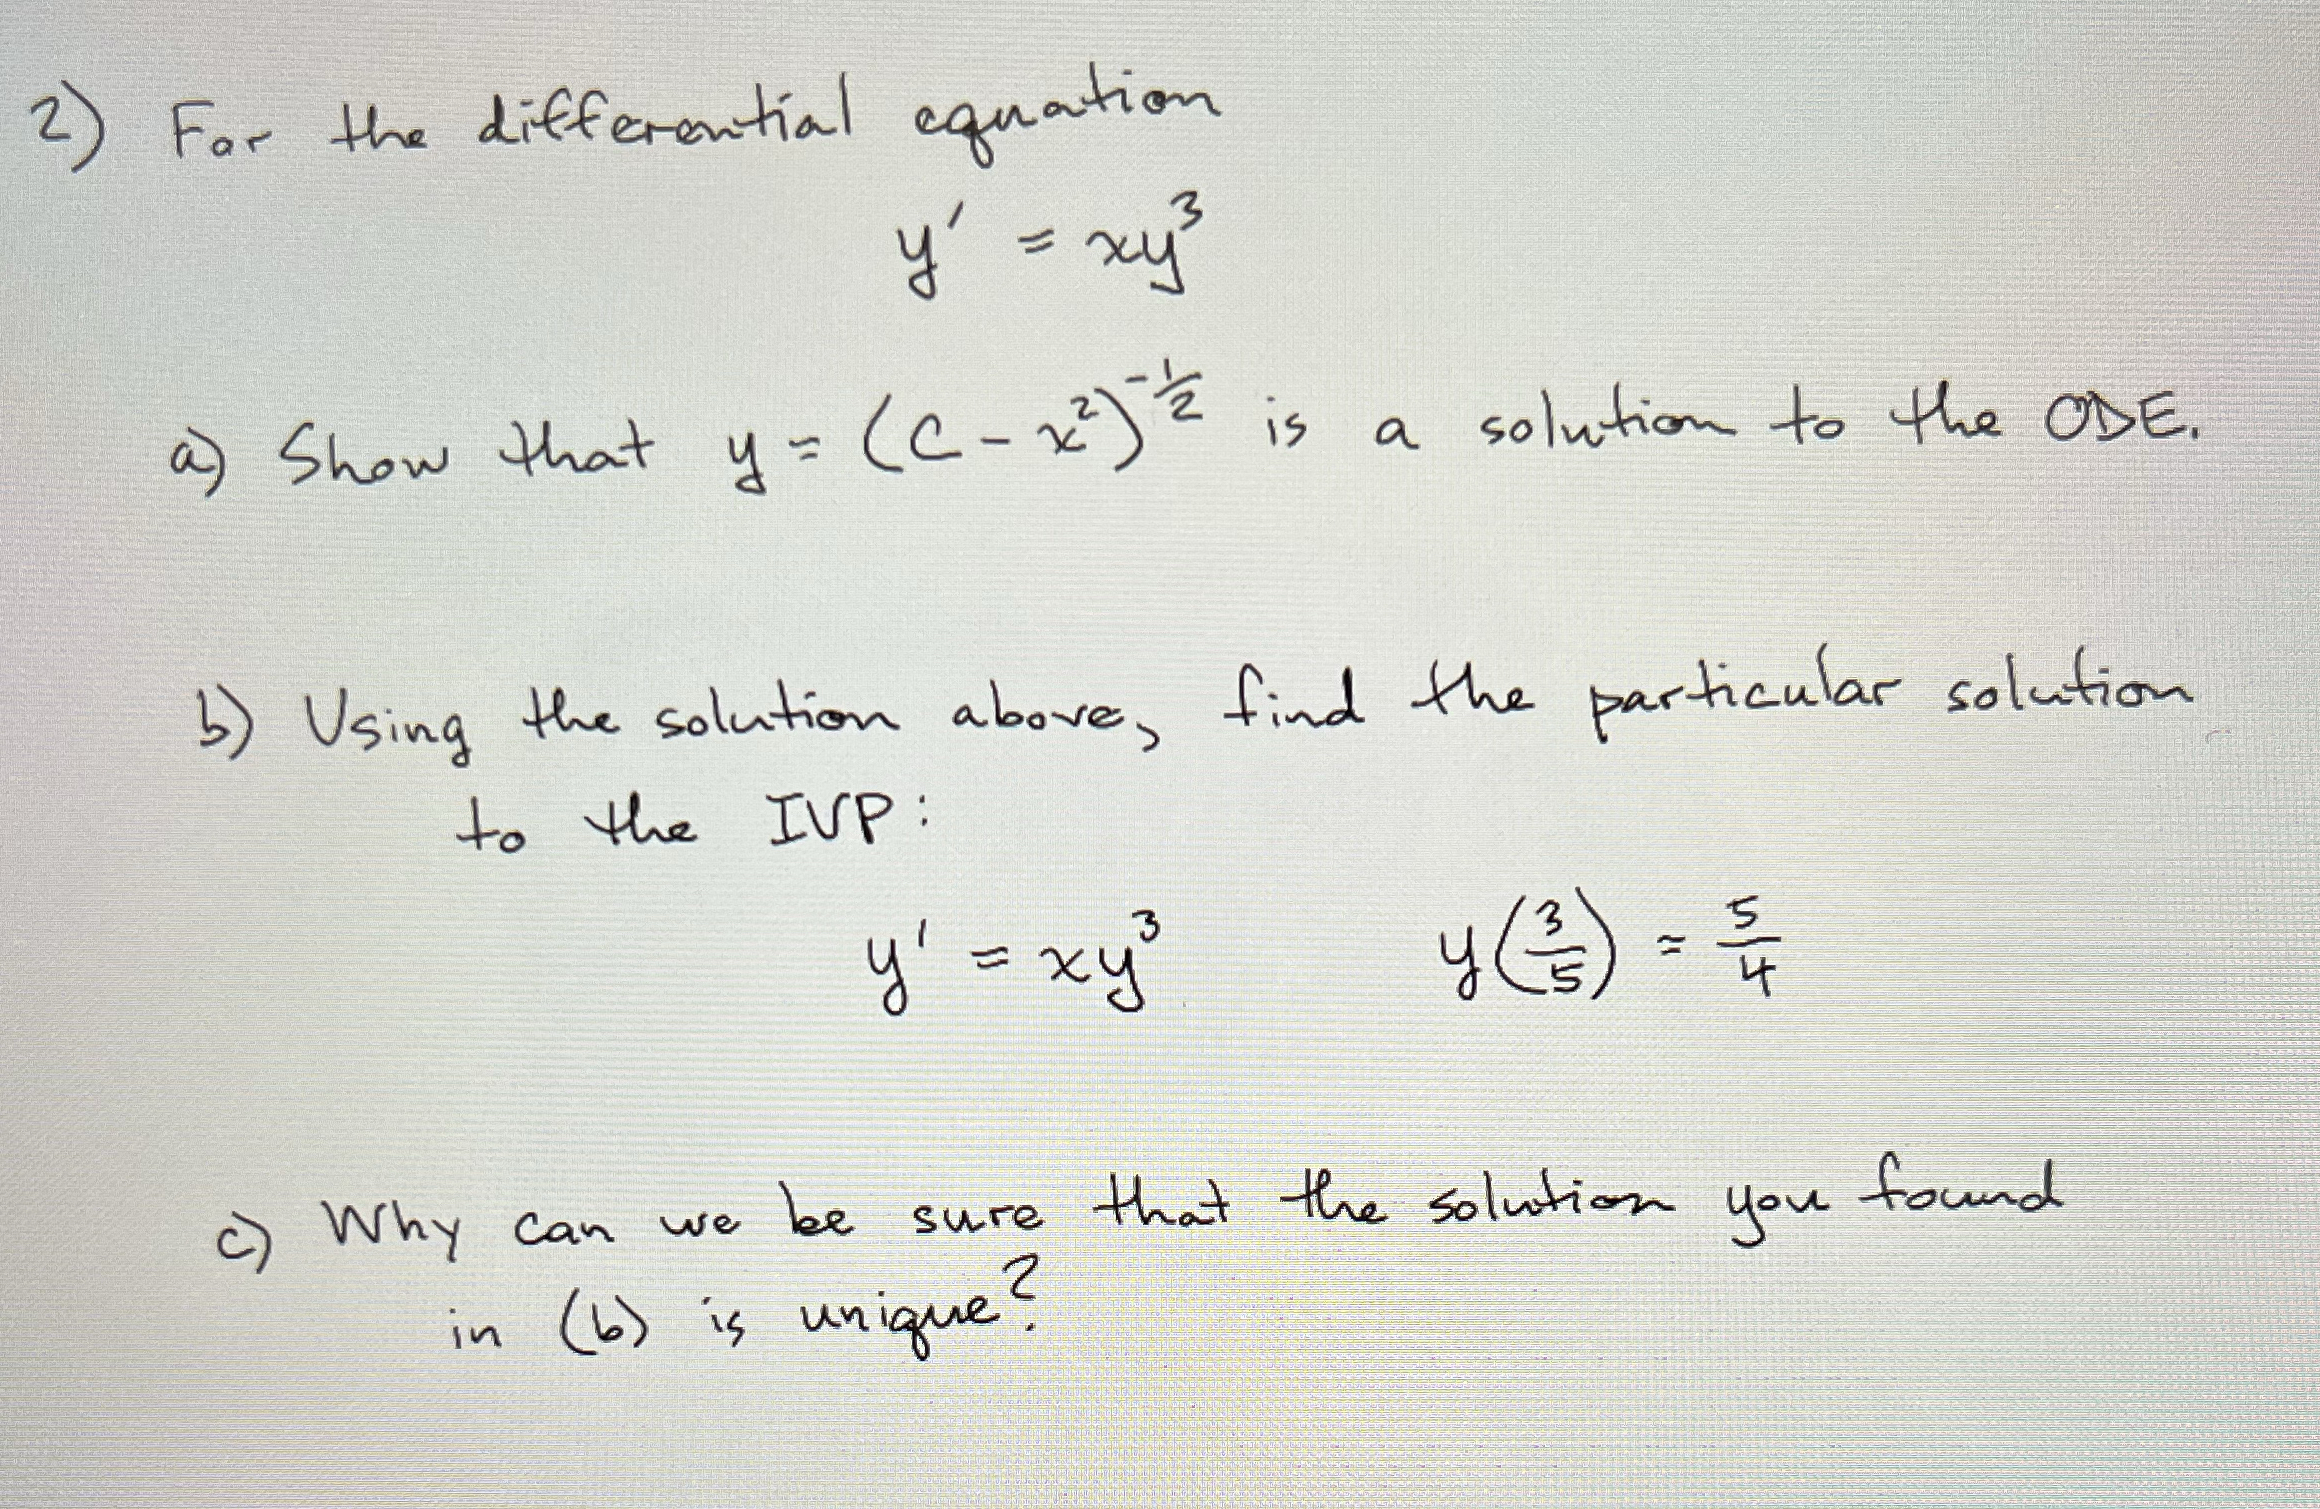 2) For the differential equation
y' = xy³
a) Show that y = (C - x²)^(-1/2) is a solution to the ODE.
b) Using the solution above, find the particular solution
to the IVP:
y' = xy³ y(3/5) = 5/4
c) Why can we be sure that the solution you found
in (b) is unique?